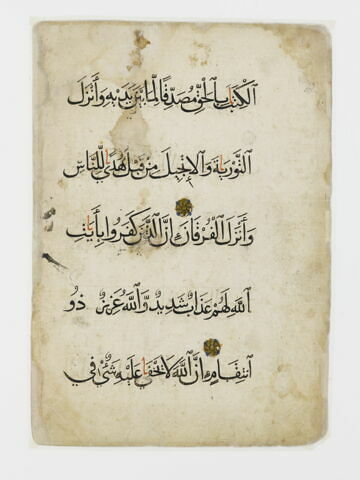 ٱلْكِتَٰبَ بِٱلْحَقِّ مُصَدِّقًا لِّمَا بَيْنَ يَدَيْهِ وَأَنْزَلَ
ٱلتَّوْرَىٰةَ وَٱلْإِنْجِيلَ مِنْ قَبْلُ هُدًى لِّلنَّاسِ
وَأَنْزَلَ ٱلْفُرْقَانَ إِنَّ ٱلَّذِينَ كَفَرُوا بِـَٔايَٰتِ
ٱللَّهِ لَهُمْ عَذَابٌ شَدِيدٌ وَٱللَّهُ عَزِيزٌ ذُو
ٱنْتِقَامٍ إِنَّ ٱللَّهَ لَا يَخْفَىٰ عَلَيْهِ شَيْءٌ فِي